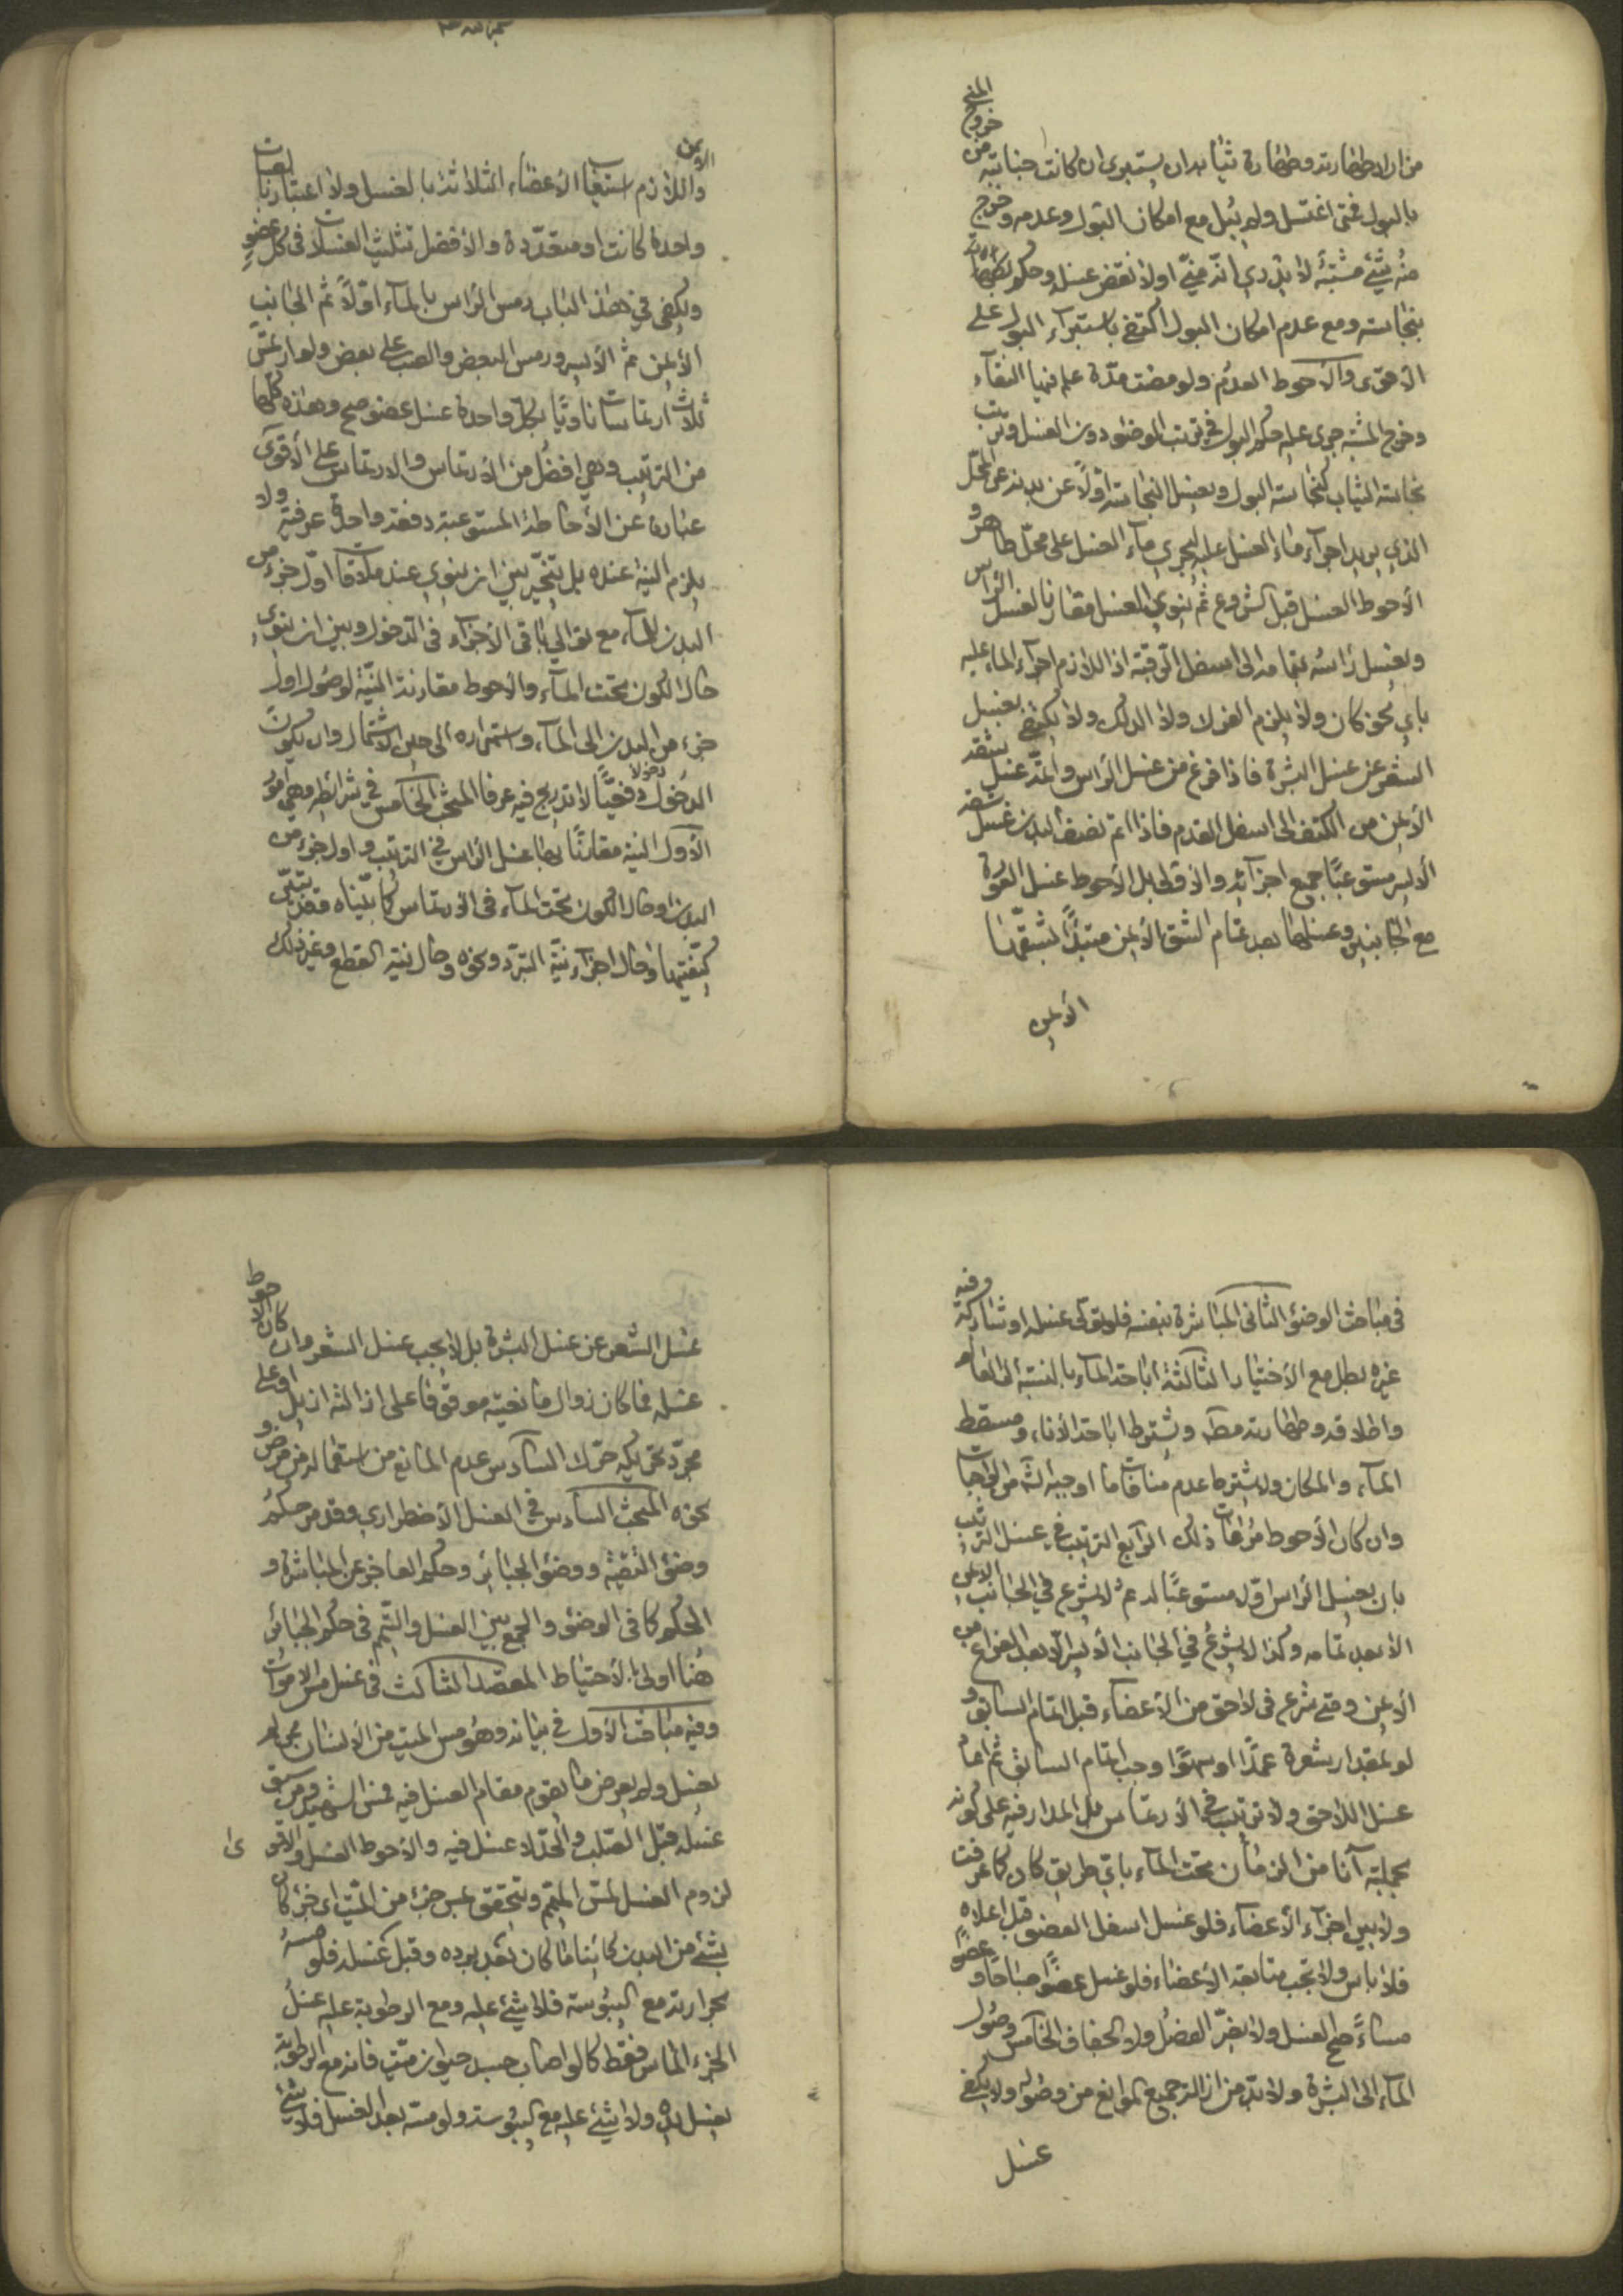 من اراد طهارته وطهارة ثيابه ان يستبرئ ان كانت جنابته من خروج المني
بالبول فمتى اغتسل ولم يبل مع امكان البول وعدمه وخرج
منه شيء مشتبه لا يدري انه مني او لا نقض غسله وحكم
بنجاسته ومع عدم امكان البول اكتفى باستبراء البول على
الاقوى والاحوط العدم ولو مضت مدة علم فيها النقاء
وخرج المشتبه جرى عليه حكم البول في ترتب الوضوء دون الغسل وترتب
نجاسة الثياب كنجاسة البول ويغسل النجاسة اولاً عن بدنه عن المحل
الذي يريد اجراء ماء الغسل عليه ليجري ماء الغسل على محل طاهر و
الاحوط الغسل قبل الشروع ثم ينوي الغسل مقارنا لغسل الراس
ويغسل راسه بتمامه الى اسفل الرقبة اذ اللازم اجراء الماء عليه
باي نحو كان ولا يلزم الفرك ولا الدلك ولا يكتفي بغسل
الشعر عن غسل البشرة فاذا فرغ من غسل الراس واتمه غسل شقه
الايمن من الكتف الى اسفل القدم فاذا اتم نصف البدن غسل شقه
الايسر مستوعبًا جميع اجزائه والاولى بل الاحوط غسل العورة
مع الجانبين وغسلها بعد تمام الشق الايمن مبتدأً بشقها
الايمن
الايمن
واللازم استيعاب الاعضاء الثلاثة بالغسل ولا اعتبار بالغسلات
واحدة كانت او متعددة والافضل تثليث الغسلات في كل عضو
ويكفي في هذا الباب رمس الراس بالماء اوّلاً ثم الجانب
الايمن ثم الايسر ورمس البعض والصب على بعض ولو ارتمس
ثلاث ارتماسات ناويًا بكل واحدة غسل عضو صح وهذه كلها
من الترتيب وهي افضل من الارتماس والارتماس على الاقوى
عبارة عن الاحاطة المستوعبة دفعة واحدة عرفية ولا
يلزم النية عنده بل يتخير بين ان ينوي عند ملاقاة اول جزء من
البدن للماء مع توالي باقي الاجزاء في الدخول وبين ان ينوي
حال الكون تحت الماء والاحوط مقارنة النية لوصول اول
جزء من البدن الى الماء واستمراره الى حين الاشتمال وان يكون
الدخول دخولا دفعيًا لا تدريج فيه عرفا المبحث الخامس في شرائطه وهي امور
الاول النية مقارنًا بها غسل الراس في الترتيب واول جزء من
البدن او حال الكون تحت الماء في الارتماس كما بيّناه وقد تبيّن
كيفيتها وحال اجزاء نية التبرد ونحوه وحال نية القطع وغير ذلك
في مباحث الوضوء الثاني المباشرة بنفسه فلو تولى غسله او شاركه وفيه
غيره بطل مع الاختيار الثالث اباحة الماء بالنسبة الى العالم
واطلاقه وطهارته مطلقا ويشترط اباحة الاناء ومسقط
الماء والمكان ولا يشترط عدم منافات ما اوجبه الله من الواجبات
وان كان الاحوط مراعات ذلك الرابع الترتيب في غسل الترتيب
بان يغسل الراس اوّلا مستوعبًا له ثم لا يشرع في الجانب الايمن
الا بعد تمامه وكذا لا يشرع في الجانب الايسر الا بعد الفراغ من
الايمن ومتى شرع في لاحق من الاعضاء قبل اتمام السابق و
لو بمقدار شعرة عمدًا او سهوًا وجب اتمام السابق ثم اعاد
غسل اللاحق ولا ترتيب في الارتماس بل المدار فيه على كونه
بجملته آنا من الزمان تحت الماء باي طريق كان كما عرفت
ولا بين اجزاء الاعضاء فلو غسل اسفل العضو قبل اعلاه
فلا باس ولا تجب متابعة الاعضاء فلو غسل عضوًا صباحًا وعضوًا
مساءً صح الغسل ولا يضر الفصل ولا الجفاف الخامس وصول
الماء الى البشرة ولا بد من ازالة جميع الموانع من وصوله ولا يكفي
غسل
غسل الشعر عن غسل البشرة بل لا يجب غسل الشعر وان كان الاحوط
غسله فما كان زوال مانعيته موقوفا على ازالته ازيل او على
مجرد تحريكه حرك السادس عدم المانع من استعماله من مرض و
نحوه المبحث السادس في الغسل الاضطراري وقد مر حكم
وضوء التقية ووضوء الجبائر وحكم العاجز عن المباشرة و
الحكم كما في الوضوء والجمع بين الغسل والتيمم في حكم الجبائر
هنا اولى بالاحتياط المقصد الثالث في غسل مس الاموات
وفيه مباحث الاول في بيانه وهو مس الميت من الانسان مما لم
يغسل ولم يعرض ما يقوم مقام الغسل فيه فمس الشهيد ومن سبق
غسله قبل الصلب والحد لا غسل فيه والاحوط الغسل والاقوى
لزوم الغسل لمس الميمم ويتحقق بمس جزء من الميت اي جزء كان
بشيء من البدن كائنا ما كان بعد برده وقبل غسله فلو مسه
بحرارته مع اليبوسة فلا شيء عليه ومع الرطوبة عليه غسل
الجزء الماس فقط كما لو اصاب جسد حيوان ميت فانه مع الرطوبة
يغسل يده ولا شيء عليه مع اليبوسة ولو مسه بعد الغسل فلا شيء